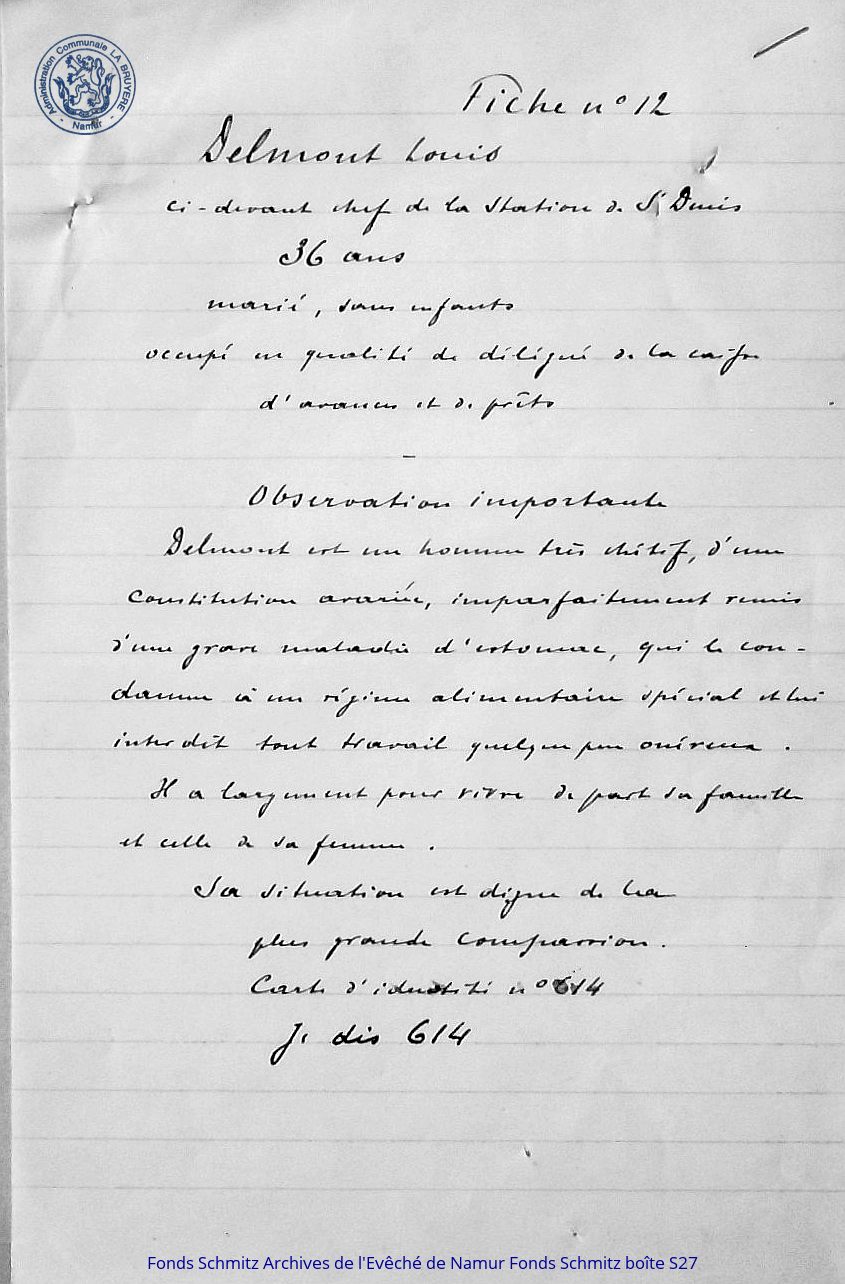 Administration Communale LA BRUYERE - Namur -
Fiche n° 12
Delmont Louis
ci-devant chef de la Station de St Denis
36 ans
marié, sans enfants
occupé en qualité de délégué de la caisse
d'avances et de prêts
Observation importante
Delmont est un homme très chétif, d'une
constitution avariée, imparfaitement remis
d'une grave maladie d'estomac, qui le con-
damne à un régime alimentaire spécial et lui
interdit tout travail quelque peu onéreux.
Il a largement pour vivre de part sa famille
et celle de sa femme.
Sa situation est digne de la
plus grande compassion.
Carte d'identité n° 614
Je dis 614
Fonds Schmitz Archives de l'Evêché de Namur Fonds Schmitz boîte S27